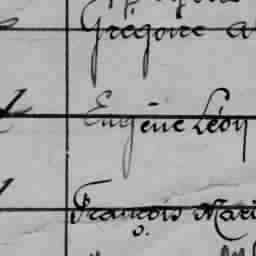 Grégoire
Eugène Léon
François Mari